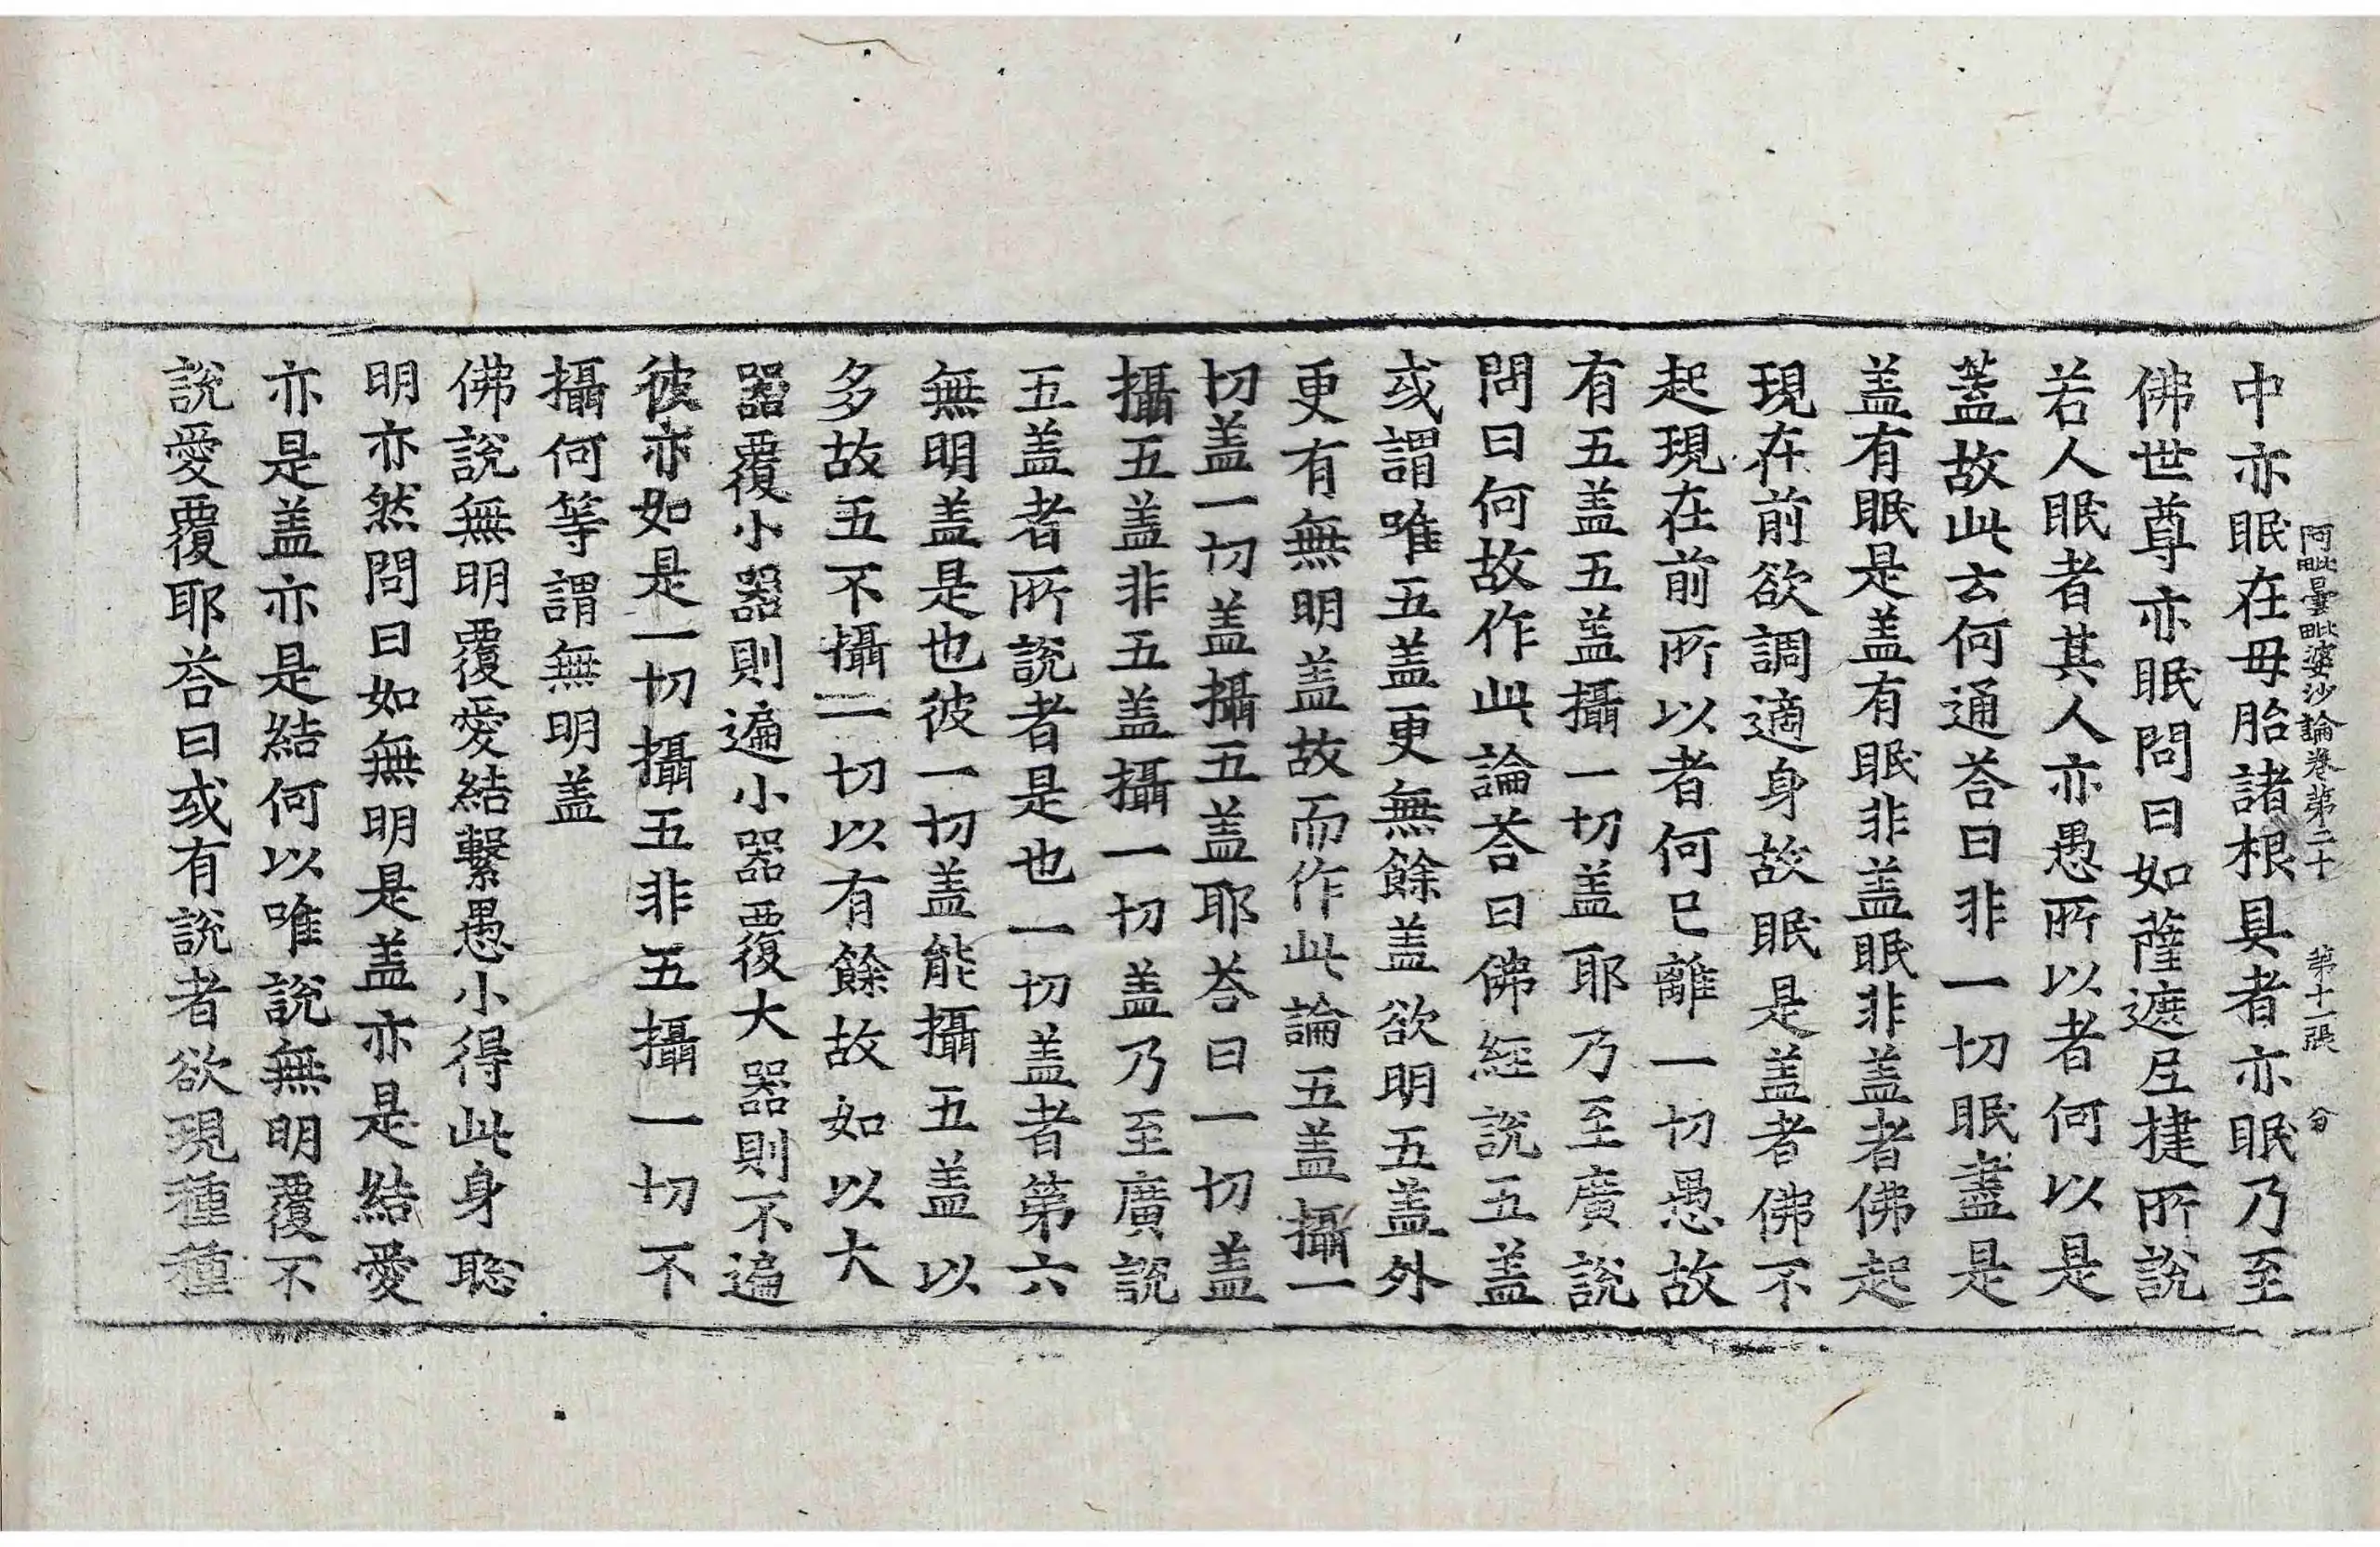 阿毗曇毗婆沙論卷第二十 第十一張 分
中亦眠在母胎諸根具者亦眠乃至
佛世尊亦眠問曰如薩遮尼揵所說
若人眠者其人亦愚所以者何以是
蓋故此云何通荅曰非一切眠盡是
盖有眠是盖有眠非盖眠非盖者佛起
現在前欲調適身故眠是盖者佛不
起現在前所以者何已離一切愚故
有五盖五盖攝一切盖耶乃至廣說
問曰何故作此論荅曰佛經說五盖
或謂唯五盖更無餘盖欲明五盖外
更有無明盖故而作此論五盖攝一
切盖一切盖攝五盖耶荅曰一切盖
攝五盖非五盖攝一切盖乃至廣說
五盖者所說者是也一切盖者第六
無明盖是也彼一切盖能攝五盖以
多故五不攝一切以有餘故如以大
器覆小器則遍小器覆大器則不遍
彼亦如是一切攝五非五攝一切不
攝何等謂無明盖
佛說無明覆愛結繫愚小得此身聡
明亦然問曰如無明是盖亦是結愛
亦是盖亦是結何以唯說無明覆不
說愛覆耶荅曰或有說者欲現種種